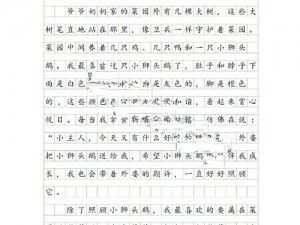 爷爷奶奶家的菜园外有几棵大树，这些大
树笔直地站在那里，像卫兵一样守护着菜园。
菜园中间养着几只鸡、几只鸭和一只小狮头
鹅。我最喜
鹅了，它的肚子和脖子下
面是白色
灰色的，脚是橙色
的，这些颜色
和谐，看起来赏心
悦目。每当我拿着
喂
它
，仿佛在说：
“小主人，今天又有什么好
外婆
把小狮头鹅送给我，希望小狮头鹅
伴我成
长，我也会带着外婆的期许，一直好好照顾
它。
除了照顾小狮头鹅，我最喜欢的要属在菜